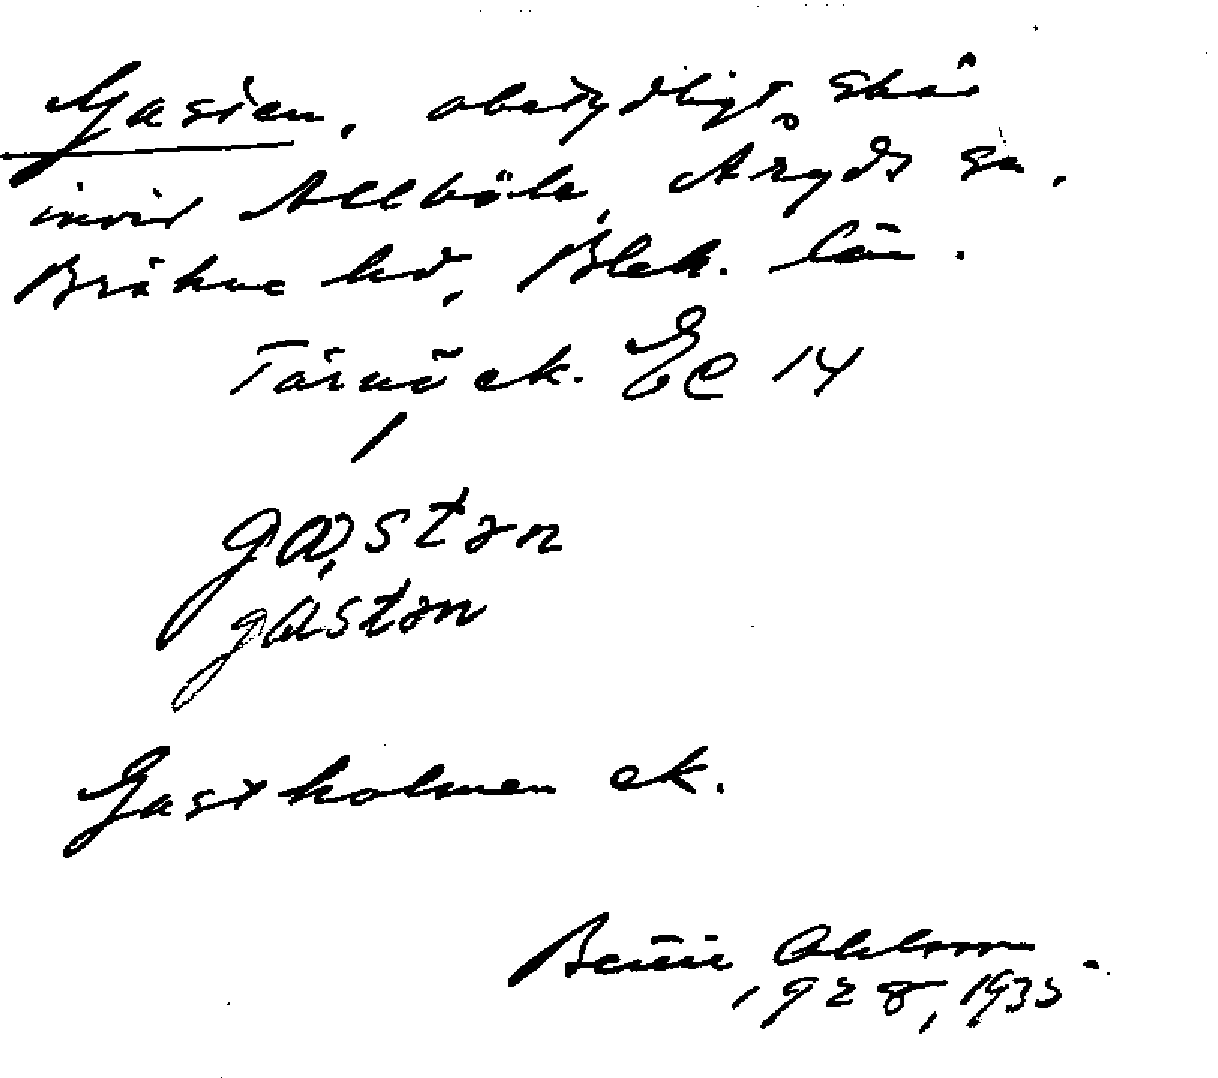 Gasten, obetydligt skär
invid Allböle, Åryds sn,
Bräkne hd, Blek. län.
Tärnö ek. Ec 14
gastən
gastən
Gastholmen ek.
Bertil Ohlsson
1928, 1935